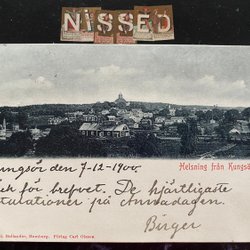 NISSED
Helsning från Kungsö
ungsör den 7-12-1900
k för brefvet. De hjärtligaste
tulationer på Annadagen.
Birger
Hollander, Hamburg. Förlag Carl Olsson